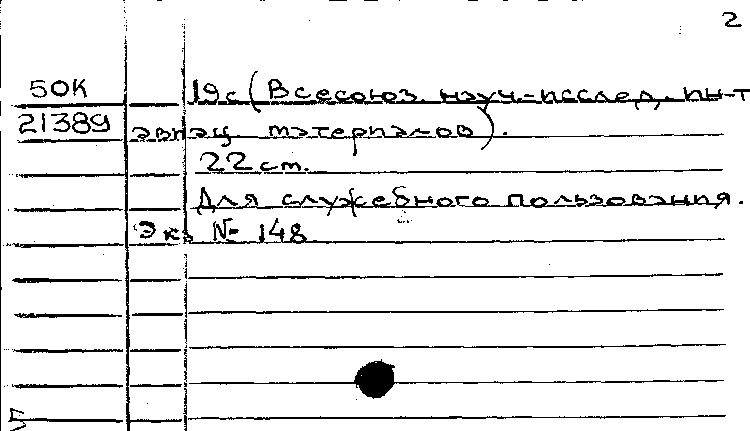 2
50К 19с (Всесоюз. науч.-исслед. ин-т
21389 авиац. материалов).
22 см.
Для служебного пользования.
Экз № 148